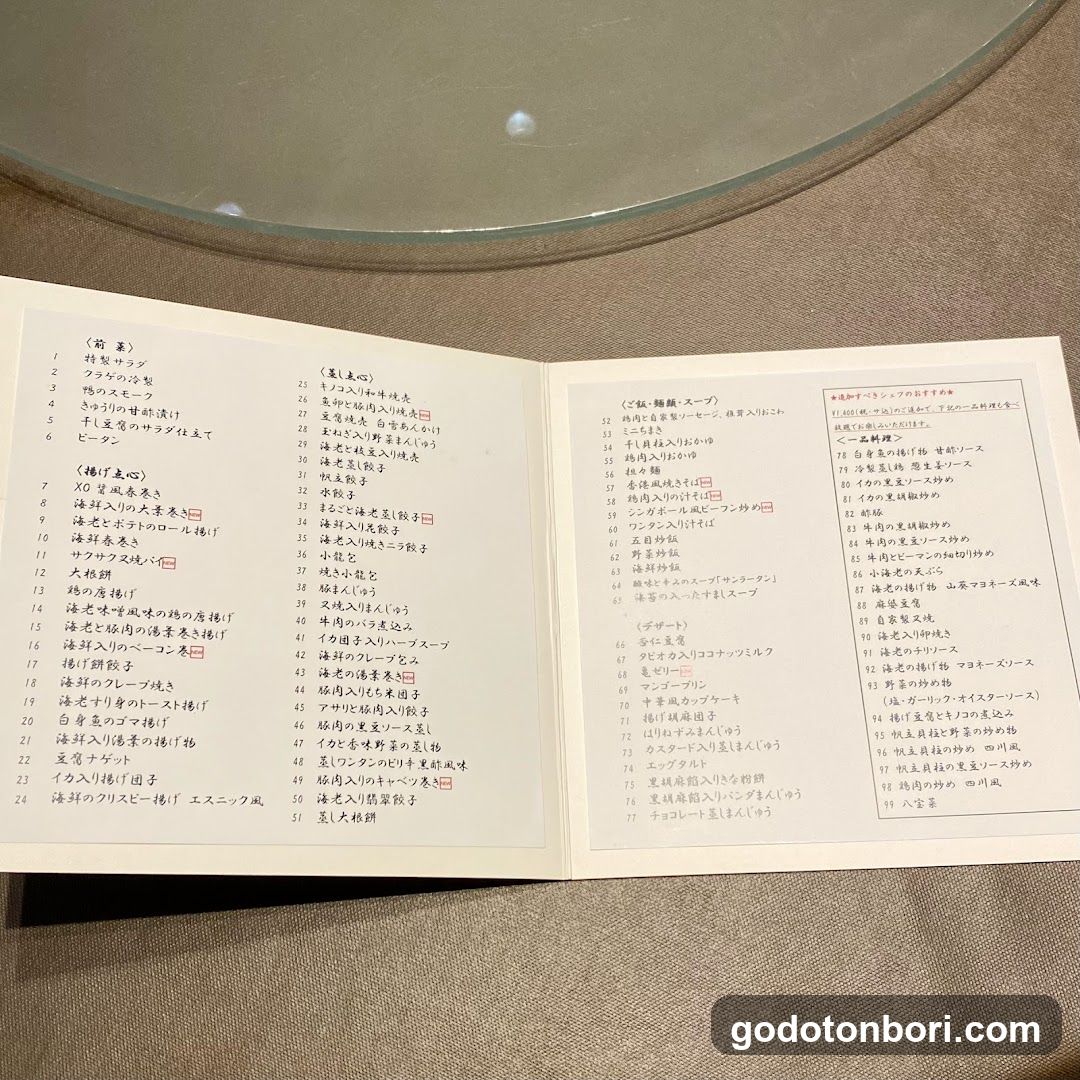 〈前 菜〉
1 特製サラダ
2 クラゲの冷製
3 鴨のスモーク
4 きゅうりの甘酢漬け
5 干し豆腐のサラダ仕立て
6 ピータン
〈揚げ点心〉
7 XO 醤風春巻き
8 海鮮入りの大葉巻き NEW
9 海老とポテトのロール揚げ
10 海鮮春巻き
11 サクサク叉焼パイ NEW
12 大根餅
13 鶏の唐揚げ
14 海老味噌風味の鶏の唐揚げ
15 海老と豚肉の湯葉巻き揚げ
16 海鮮入りのベーコン巻 NEW
17 揚げ餅餃子
18 海鮮のクレープ焼き
19 海老すり身のトースト揚げ
20 白身魚のゴマ揚げ
21 海鮮入り湯葉の揚げ物
22 豆腐ナゲット
23 イカ入り揚げ団子
24 海鮮のクリスピー揚げ エスニック風
〈蒸し点心〉
25 キノコ入り和牛焼売
26 魚卵と豚肉入り焼売 NEW
27 豆腐焼売 白雪あんかけ
28 玉ねぎ入り野菜まんじゅう
29 海老と枝豆入り焼売
30 海老蒸し餃子
31 帆立餃子
32 水餃子
33 まるごと海老蒸し餃子 NEW
34 海鮮入り花餃子
35 海老入り焼きニラ餃子
36 小龍包
37 焼き小龍包
38 豚まんじゅう
39 叉焼入りまんじゅう
40 牛肉のバラ煮込み
41 イカ団子入りハーブスープ
42 海鮮のクレープ包み
43 海老の湯葉巻き NEW
44 豚肉入りもち米団子
45 アサリと豚肉入り餃子
46 豚肉の黒豆ソース蒸し
47 イカと香味野菜の蒸し物
48 蒸しワンタンのピリ辛黒酢風味
49 豚肉入りのキャベツ巻き NEW
50 海老入り翡翠餃子
51 蒸し大根餅
〈ご飯・麺類・スープ〉
52 鶏肉と自家製ソーセージ、椎茸入りおこわ
53 ミニちまき
54 干し貝柱入りおかゆ
55 鶏肉入りおかゆ
56 担々麺
57 香港風焼きそば NEW
58 鶏肉入りの汁そば NEW
59 シンガポール風ビーフン炒め NEW
60 ワンタン入り汁そば
61 五目炒飯
62 野菜炒飯
63 海鮮炒飯
64 酸味とキムのスープ「サンラータン」
65 海苔の入ったすましスープ
〈デザート〉
66 杏仁豆腐
67 タピオカ入りココナッツミルク
68 亀ゼリー NEW
69 マンゴープリン
70 中華風カップケーキ
71 揚げ胡麻団子
72 はりねずみまんじゅう
73 カスタード入り蒸しまんじゅう
74 エッグタルト
75 黒胡麻餡入りきな粉餅
76 黒胡麻餡入りパンダまんじゅう
77 チョコレート蒸しまんじゅう
★追加すべきシェフのおすすめ★
¥1,400(税・サ込)のご追加で、下記の一品料理も食べ
放題でお楽しみいただけます。
<一品料理>
78 白身魚の揚げ物 甘酢ソース
79 冷製蒸し鶏 葱生姜ソース
80 イカの黒豆ソース炒め
81 イカの黒胡椒炒め
82 酢豚
83 牛肉の黒胡椒炒め
84 牛肉の黒豆ソース炒め
85 牛肉とピーマンの細切り炒め
86 小海老の天ぷら
87 海老の揚げ物 山葵マヨネーズ風味
88 麻婆豆腐
89 自家製叉焼
90 海老入り卵焼き
91 海老のチリソース
92 海老の揚げ物 マヨネーズソース
93 野菜の炒め物
(塩・ガーリック・オイスターソース)
94 揚げ豆腐とキノコの煮込み
95 帆立貝柱と野菜の炒め物
96 帆立貝柱の炒め 四川風
97 帆立貝柱の黒豆ソース炒め
98 鶏肉の炒め 四川風
99 八宝菜
godotonbori.com